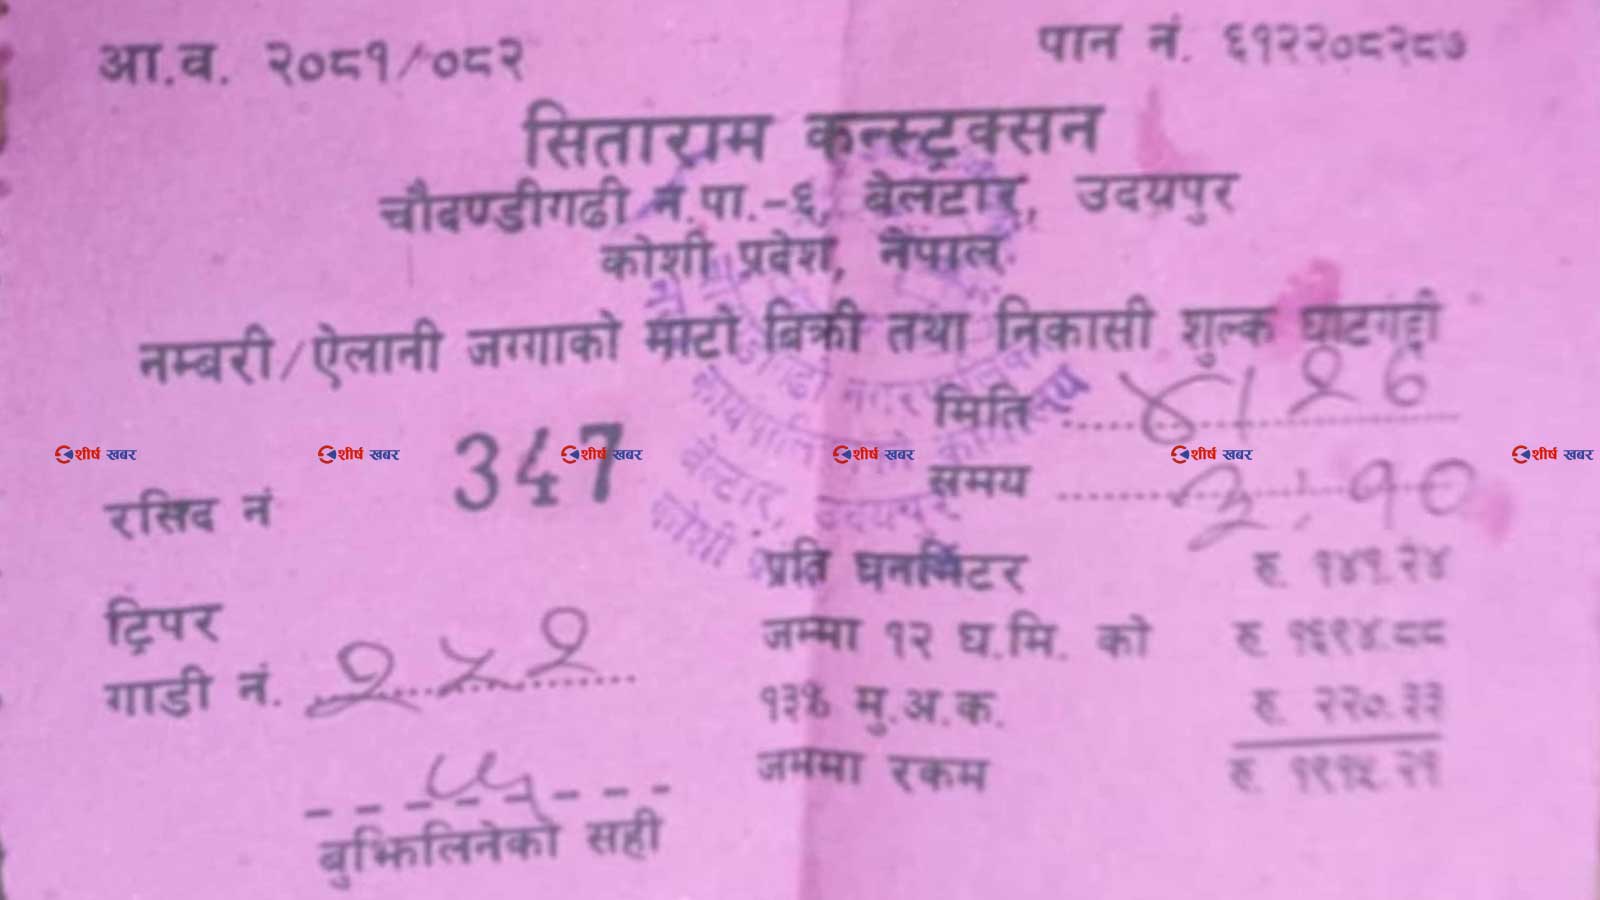 आ.व. २०८१/०८२
पान नं. ६१२२०८२८७
सिताराम कन्स्ट्रक्सन
चौदण्डीगढी न.पा.-६, बेलटार, उदयपुर
कोशी प्रदेश, नेपाल
नम्बरी/ऐलानी जग्गाको माटो बिक्री तथा निकासी शुल्क घाटगद्दी
मिति ४/२६
रसिद नं 347
समय ३:१०
शीर्ष खबर शीर्ष खबर शीर्ष खबर शीर्ष खबर शीर्ष खबर शीर्ष खबर
कार्यपालिकाको कार्यालय
बेल्टार, उदयपुर
कोशी
प्रति घनमिटर रु. १४१.२४
ट्रिपर
जम्मा १२ घ.मि. को रु. १६९४.८८
गाडी नं. २५२
१३% मु.अ.क. रु. २२०.३३
जममा रकम रु. १९१५.२१
बुझिलिनेको सही